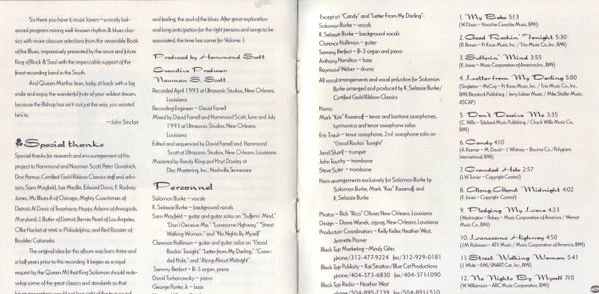 So there you have it, music lovers—a nicely bal-
anced program mixing well-known rhythm & blues clas-
sics with more obscure selections from the venerable Book
of the Blues, impressively presented by the once and future
King of Rock & Soul with the impeccable support of the
finest recording band in the South.
And Queen Martha Jean, baby, sit back with a big
smile and enjoy the wonderful fruits of your wildest dream,
because the Bishop has set it out just the way you wanted
him to.
—John Sinclair
Special thanks
Special thanks for research and encouragement of this
project to Hammond and Nauman Scott, Peter Guralnick,
Doc Pomus, Certified Gold Ribbon Classics staff and advi-
sors, Sam Mayfield, Joe Medlin, Edward Davis, E. Rodney
Jones, Mr. Blues A of Chicago, Mighty Coachmen of
Detroit, Al Davis of Texarkana, Happy Adams of Annapolis,
Maryland, J. Butler of Detroit, Bernie Pearl of Los Angeles,
Ollie Hackett at in Philadelphia, and Red Rooster of
Boulder, Colorado.
The original idea for this album was born three and
a half years prior to this recording. It began as a royal
request by the Queen Mj that King Solomon should rede-
velop some of the great classics and standards so that
and feeling, and soul of the blues. After great exploration
and long anticipation for the right persons and songs to be
associated, the time has come for Volume I.
Produced by Hammond Scott
Executive Producer
Nauman S. Scott
Recorded April 1993 at Ultrasonic Studios, New Orleans,
Louisiana
Recording Engineer – David Farrell
Mixed by David Farrell and Hammond Scott, June and July
1993 at Ultrasonic Studios, New Orleans,
Louisiana
Edited and sequenced by David Farrell and Hammond
Scott at Ultrasonic Studios, New Orleans, Louisiana
Mastered by Randy Kling and Hoyt Dooley at
Disc Mastering, Inc., Nashville, Tennessee
Personnel
Solomon Burke – vocals
K. Selassie Burke – background vocals
Sam Mayfield – guitar and guitar solos on "Sufferin' Mind,"
"Don't Deceive Me," "Lonesome Highway," "Street
Walking Woman," and "No Nights By Myself"
Clarence Hollimon – guitar and guitar solos on "Good
Rockin' Tonight," "Letter from My Darling," "Crawd-
dad Hole," and "Along About Midnight"
Sammy Berfect – B-3 organ, piano
David Torkanowsky – piano
George Porter, Jr. – bass
Except on "Candy" and "Letter From My Darling":
Solomon Burke – vocals
K. Selassie Burke – background vocals
Clarence Hollimon – guitar
Sammy Berfect – B-3 organ and piano
Anthony Hamilton – bass
Raymond Weber – drums
All vocal arrangements and vocal production for Solomon
Burke arranged and produced by K. Selassie Burke/
Certified Gold Ribbon Classics
Horns:
Mark "Kaz" Kazanoff – tenor and baritone saxophones,
harmonica and tenor saxophone solos
Eric Traub – tenor saxophone, 2nd saxophone solo on
"Good Rockin' Tonight"
Jamil Sharif – trumpet
John Touchy – trombone
Steve Suter – trombone
Horn arrangements exclusively for Solomon Burke by
Solomon Burke, Mark "Kaz" Kazanoff, and
K. Selassie Burke
Photos – Rick "Rico" Olivier, New Orleans, Louisiana
Design – Diane Wanek, signorq, New Orleans, Louisiana
Production Coordinators – Kelly Keller, Heather West,
Jeanette Posner
Black Top Marketing – Mindy Giles
phone/312-477-9224 fax/312-929-0181
Black Top Publicity – Kat Stratton/Blue Cat Productions
phone/404-373-6830 fax/404-371-1090
Black Top Radio – Heather West
phone/504-895-7239 fax/504-891-1510
1. My Babe 5:13
(W. Dixon – Hoochie Coochie Music, BMI)
2. Good Rockin' Tonight 5:30
(R. Brown – Ft. Knox Music, Inc. / Trio Music Co., Inc., BMI)
3. Sufferin' Mind 3:55
(E. Jones – Music Corporation of America, Inc., BMI)
4. Letter from My Darling 5:00
(Singleton – McCoy – Ft. Knox Music, Inc. / Trio Music Co., Inc.,
BMI; Bienstock Publishing / Jerry Leiber Music / Mike Stoller Music,
ASCAP)
5. Don't Deceive Me 3:35
(C. Willis – Tideland Music Publishing / Chuck Willis Music Co.,
BMI)
6. Candy 4:10
(A. Kramer – M. David – J. Whitney – Bourne Co./Polygram
International, BMI)
7. Crawdad Hole 2:57
(L.W. Turner – Copyright Control)
8. Along About Midnight 4:02
(E. Jones – Copyright Control)
9. Pledging My Love 4:23
(Washington – Robey – Music Corporation of America / Wemar
Music Co., BMI)
10. Lonesome Highway 4:50
(J.M. Robinson – ATV Music / Music Corporation of America, BMI)
11. Street Walking Woman 5:41
(J. White – EMI/UNART Cat., Inc., BMI)
12. No Nights By Myself 7:10
(W. Williams – Arc Music Corporation, BMI)